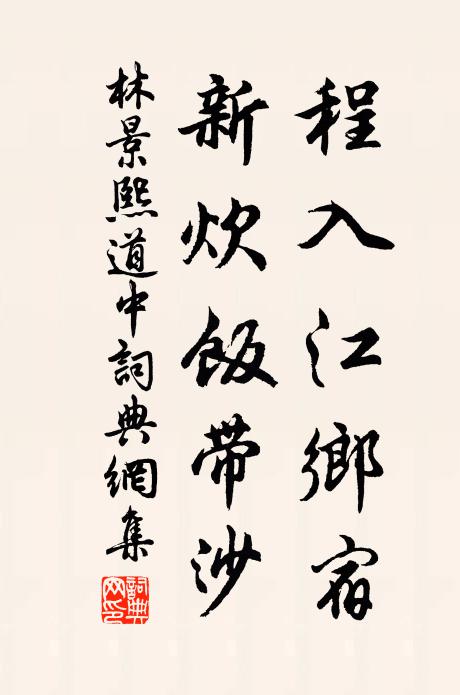 程入江鄉宿
新炊飯帶沙
林景熙道中詞典網集
詞典网印